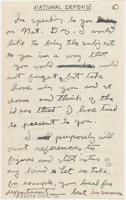 NATIONAL DEFENSE
In speaking to you
on Nat. Def. I would
like to bring the subject
to you in a way that
you would
not forget, but take
home with you and it
down and think of the
ideas that I have tried
to present to you.
I will purposely will
omit references to
figures and statistics of
any kind so let us take,
for example, your local fire
department - best insurance